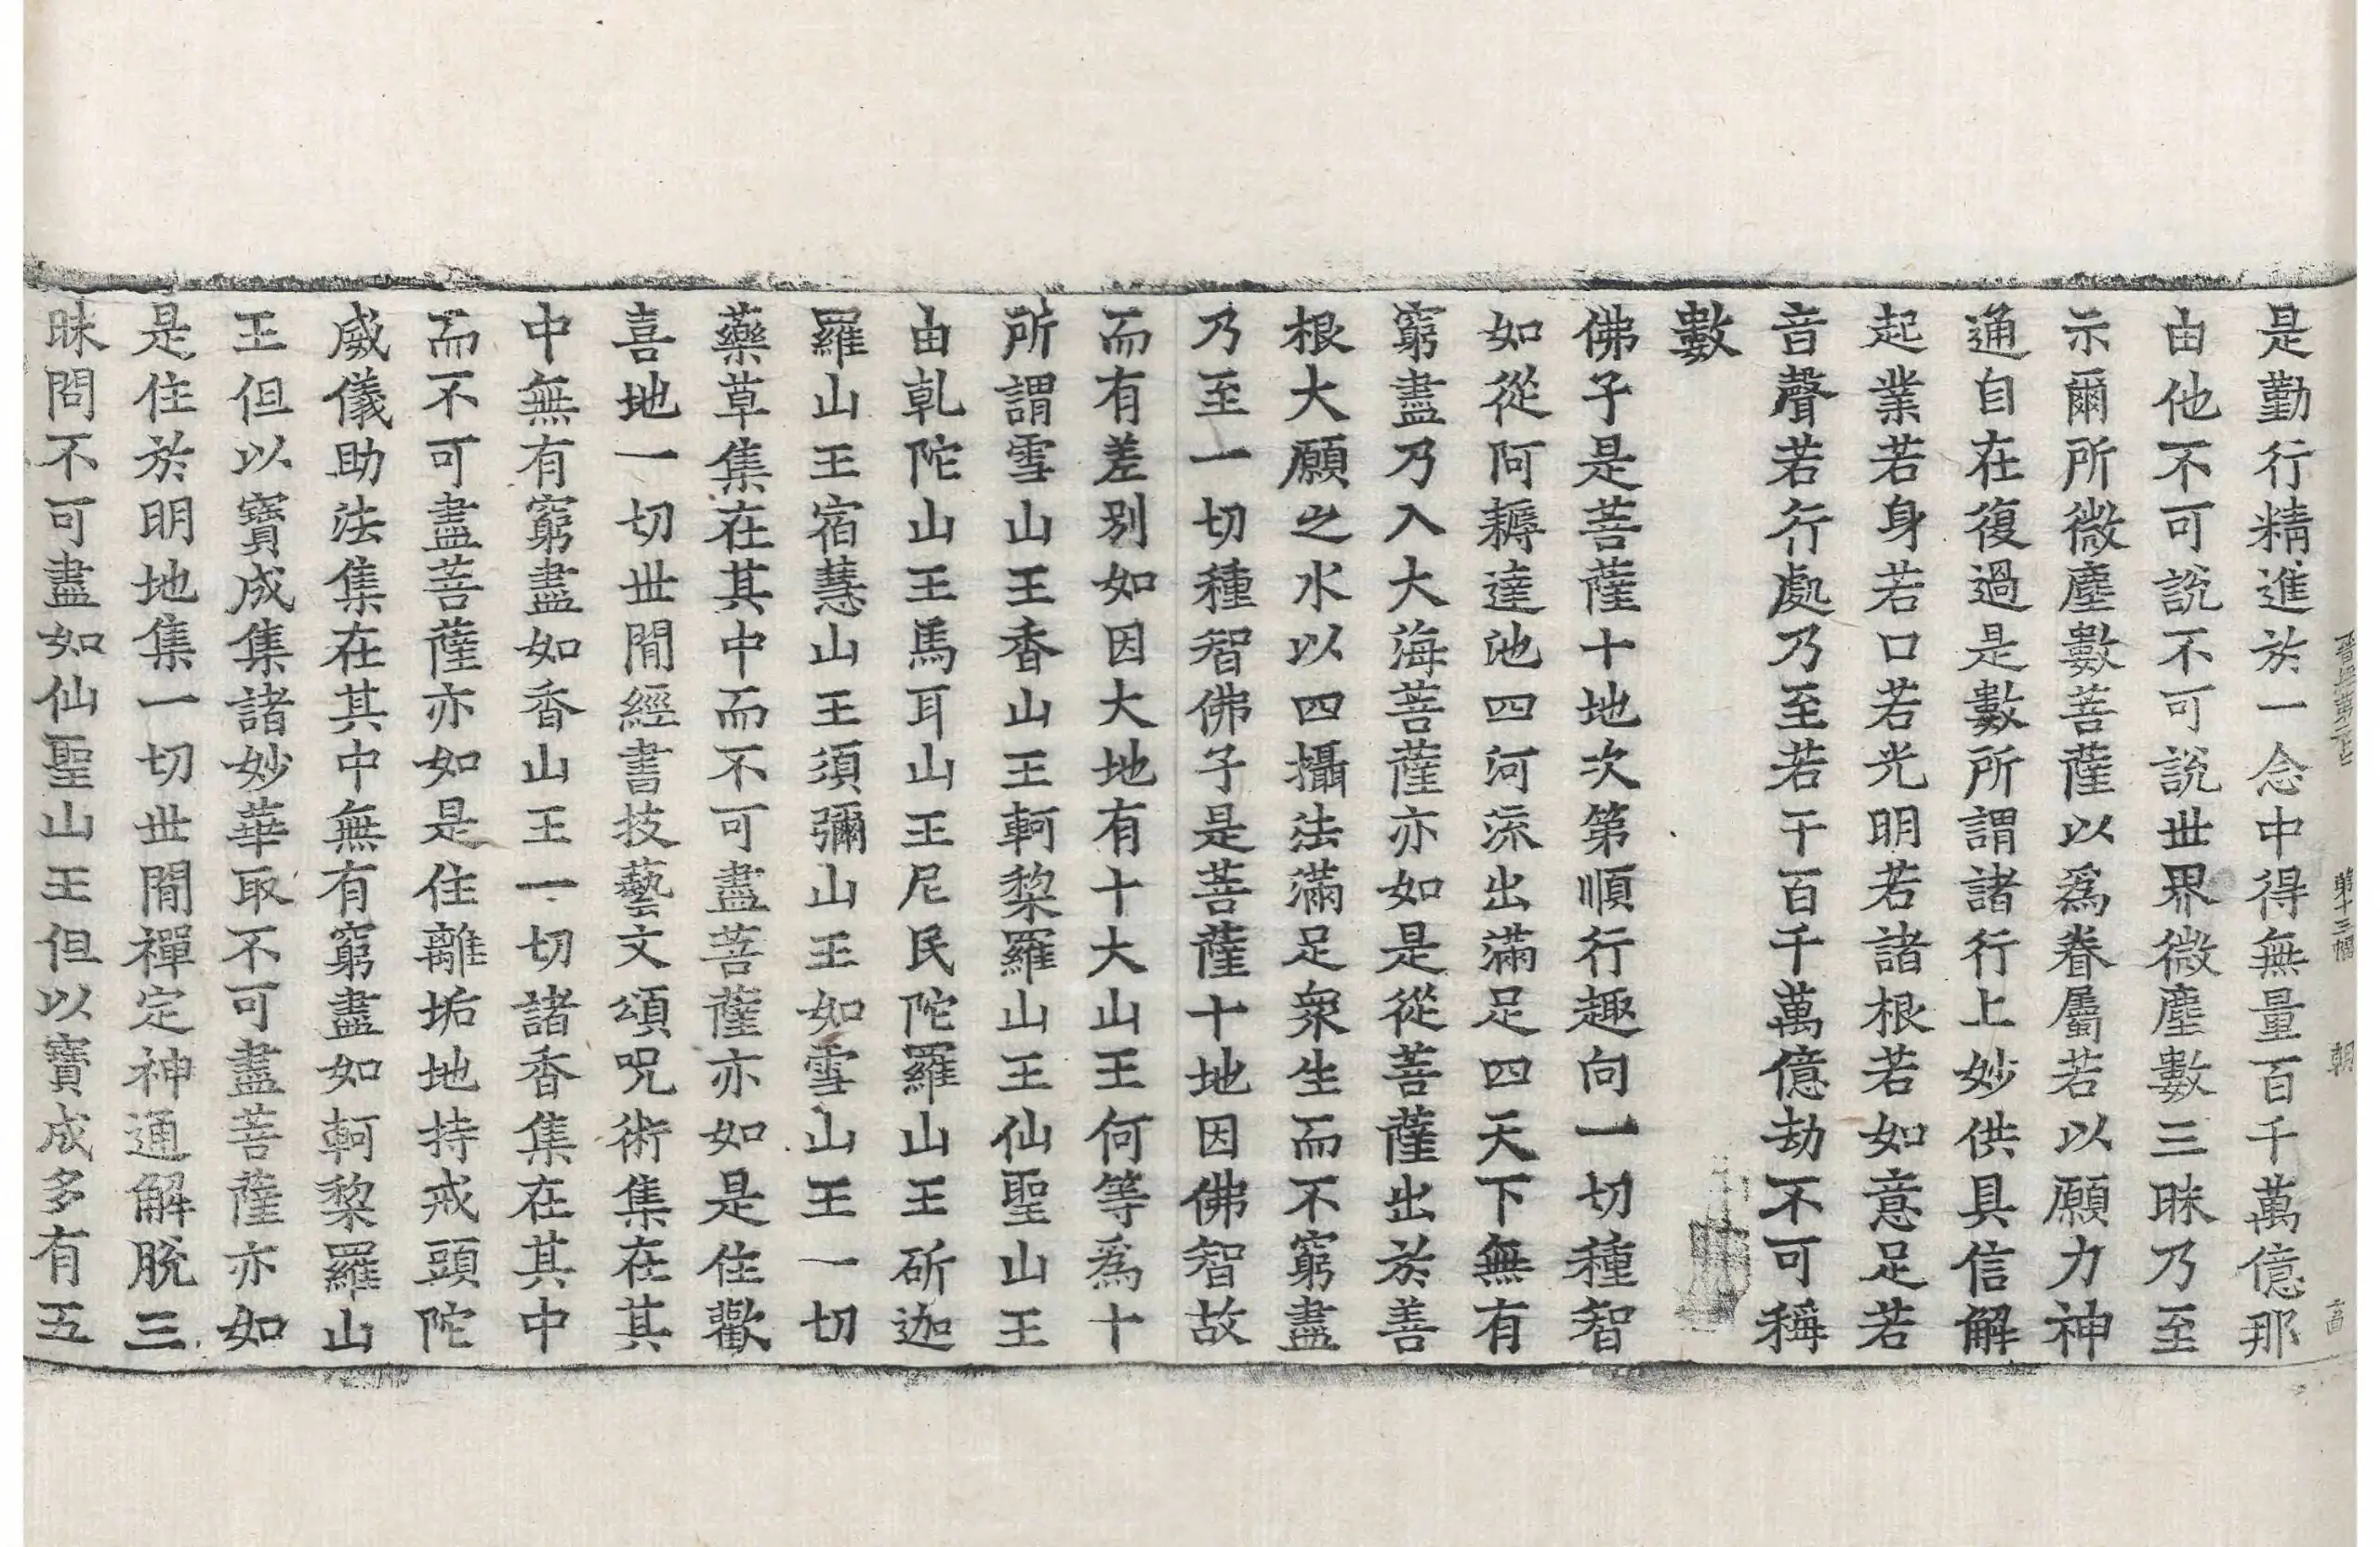 晋經第二七 第十三幅 朝
是勤行精進於一念中得無量百千萬億那
由他不可說不可說世界微塵數三昧乃至
示爾所微塵數菩薩以為眷屬若以願力神
通自在復過是數所謂諸行上妙供具信解
起業若身若口若光明若諸根若如意足若
音聲若行處乃至若干百千萬億劫不可稱
數
佛子是菩薩十地次第順行趣向一切種智
如從阿耨達池四河流出滿足四天下無有
窮盡乃入大海菩薩亦如是從菩薩出於善
根大願之水以四攝法滿足衆生而不窮盡
乃至一切種智佛子是菩薩十地因佛智故
而有差別如因大地有十大山王何等為十
所謂雪山王香山王軻梨羅山王仙聖山王
由乹陀山王馬耳山王尼民陀羅山王斫迦
羅山王宿慧山王須彌山王如雪山王一切
藥草集在其中而不可盡菩薩亦如是住歡
喜地一切世間經書技藝文頌呪術集在其
中無有窮盡如香山王一切諸香集在其中
而不可盡菩薩亦如是住離垢地持戒頭陀
威儀助法集在其中無有窮盡如軻梨羅山
王但以寶成集諸妙華取不可盡菩薩亦如
是住於明地集一切世間禪定神通解脫三
昧問不可盡如仙聖山王但以寶成多有五